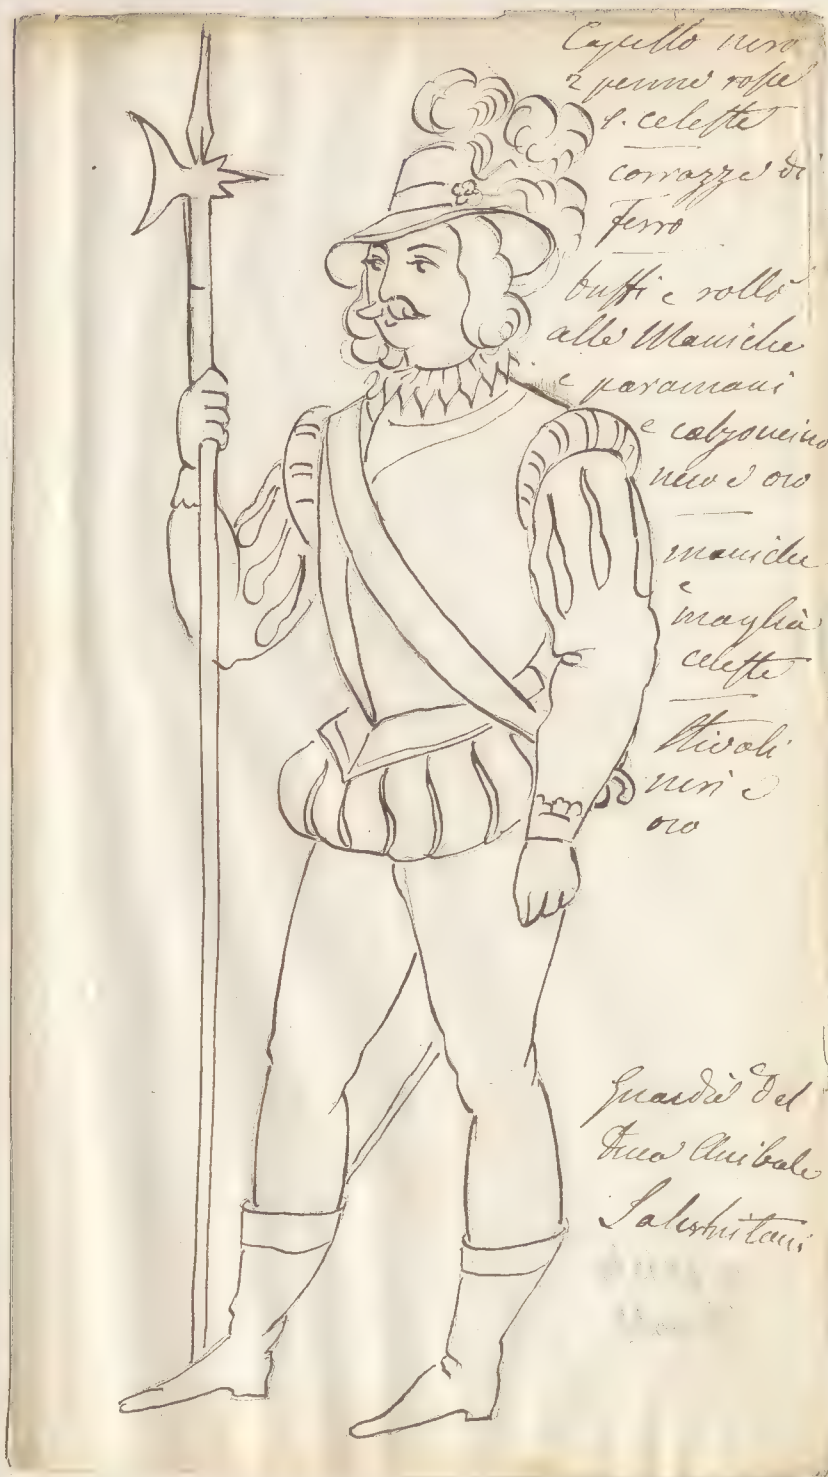 Capello nero
2 penne rosse
e. celeste
corrazze di
ferro
buffi e rollò
alle Maniche
e paramani
e calzoncino
nero e oro
maniche
e
maglia
celeste
Stivali
neri e
oro
Guardie del
Duca Anibale
Salernitani